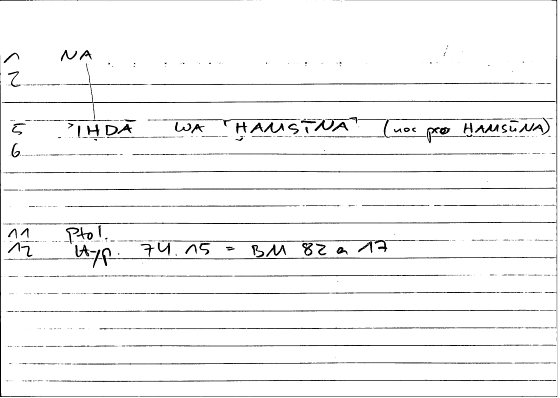 1 NA
2
5 ʾIḤDĀ WA ⌜ḪAMSĪNA⌝ (noc pro ḪAMSŪNA)
6
11 Ptol.
12 Hyp. 74.15 = BM 82 a 17